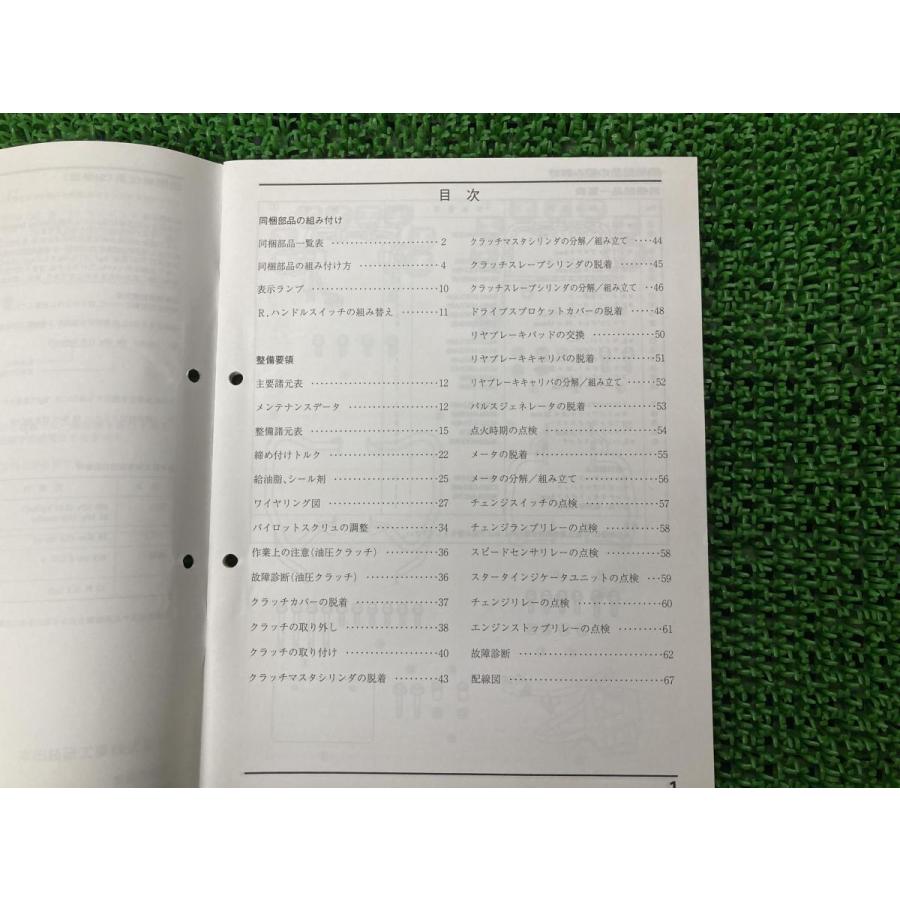 目次
同梱部品の組み付け
同梱部品一覧表 ······················· 2
同梱部品の組み付け方 ················· 4
表示ランプ ··························· 10
R.ハンドルスイッチの組み替え ········ 11
整備要領
主要諸元表 ··························· 12
メンテナンスデータ ··················· 12
整備諸元表 ··························· 15
締め付けトルク ······················· 22
給油脂、シール剤 ····················· 25
ワイヤリング図 ······················· 27
パイロットスクリュの調整 ············· 34
作業上の注意(油圧クラッチ) ··········· 36
故障診断(油圧クラッチ) ··············· 36
クラッチカバーの脱着 ················· 37
クラッチの取り外し ··················· 38
クラッチの取り付け ··················· 40
クラッチマスタシリンダの脱着 ········· 43
クラッチマスタシリンダの分解/組み立て ···· 44
クラッチスレーブシリンダの脱着 ······· 45
クラッチスレーブシリンダの分解/組み立て ·· 46
ドライブスプロケットカバーの脱着 ····· 48
リヤブレーキパッドの交換 ············· 50
リヤブレーキキャリパの脱着 ··········· 51
リヤブレーキキャリパの分解/組み立て ······ 52
パルスジェネレータの脱着 ············· 53
点火時期の点検 ······················· 54
メータの脱着 ························· 55
メータの分解/組み立て ··············· 56
チェンジスイッチの点検 ··············· 57
チェンジランプリレーの点検 ··········· 58
スピードセンサリレーの点検 ··········· 58
スタータインジケータユニットの点検 ··· 59
チェンジリレーの点検 ················· 60
エンジンストップリレーの点検 ········· 61
故障診断 ····························· 62
配線図 ······························· 67
1